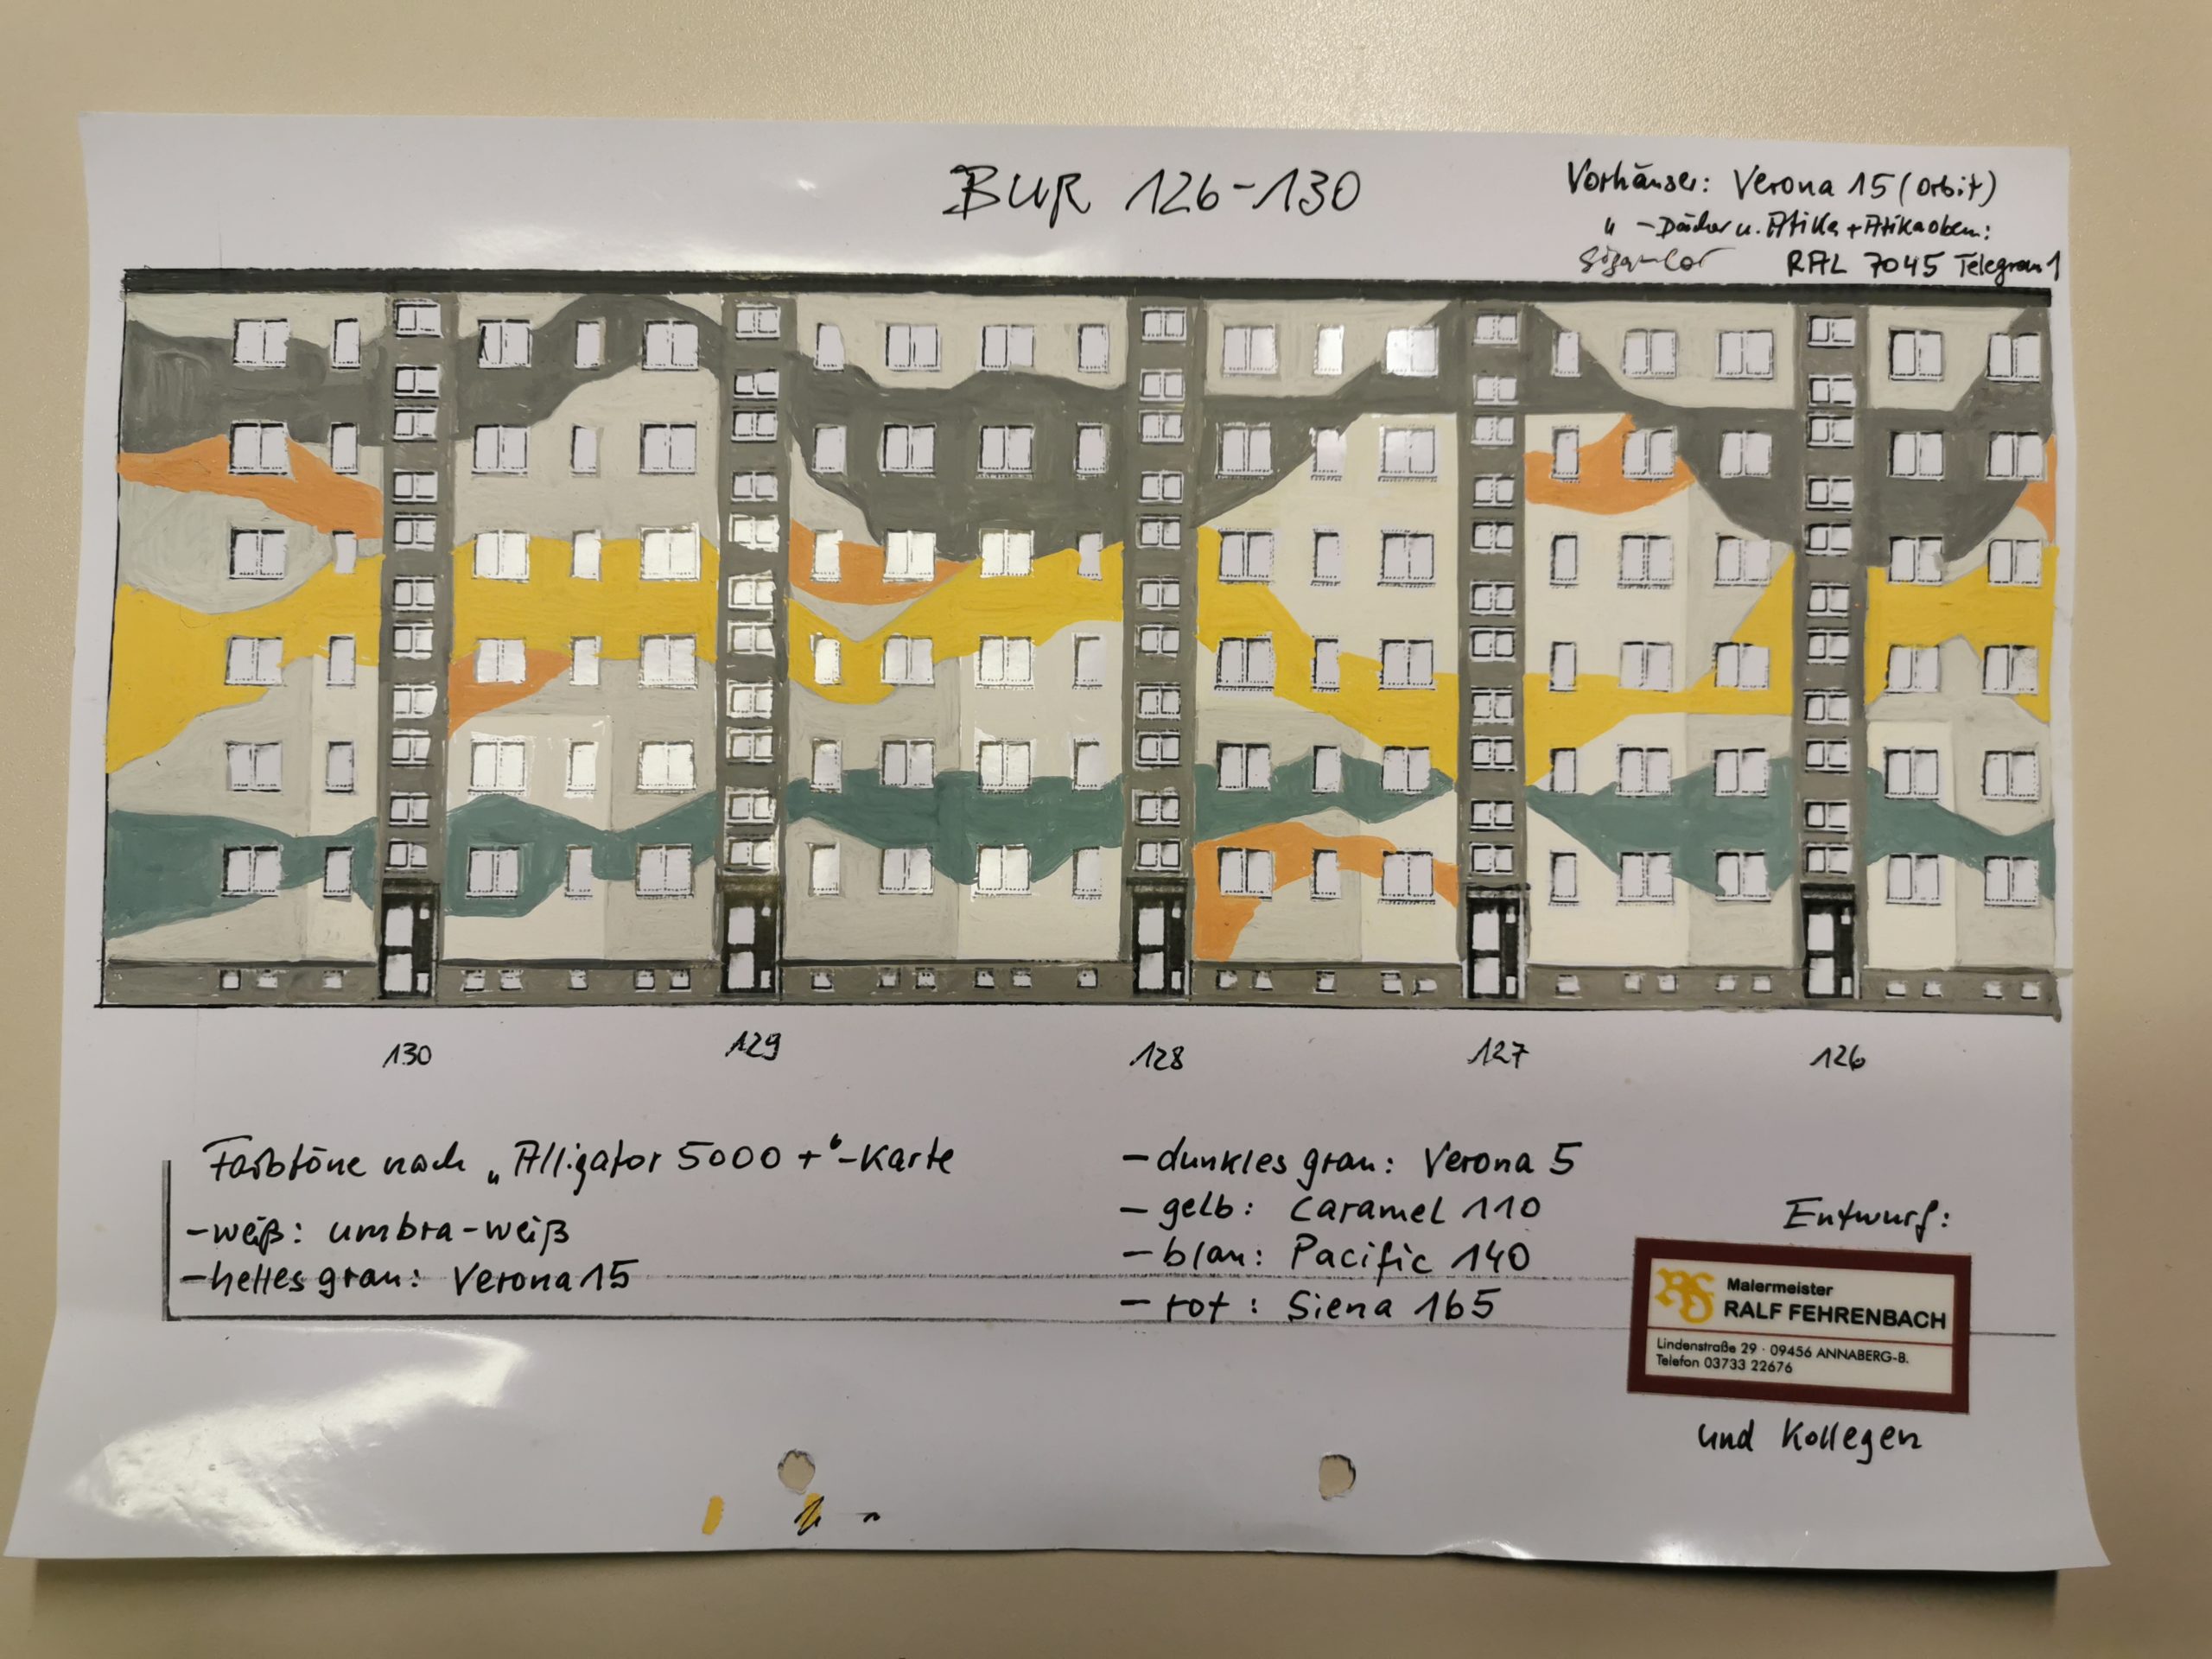 BUR 126-130
Vorhäuser: Verona 15 (orbit)
" - Dächer u. Attika + Attikaoben:
RAL 7045 Telegrau 1
130 129 128 127 126
Farbtöne nach „Alligator 5000 +"-Karte
- weiß: umbra-weiß
- helles grau: Verona 15
- dunkles grau: Verona 5
- gelb: Caramel 110
- blau: Pacific 140
- rot: Siena 165
Entwurf:
Malermeister
RALF FEHRENBACH
Lindenstraße 29 · 09456 ANNABERG-B.
Telefon 03733 22676
und Kollegen